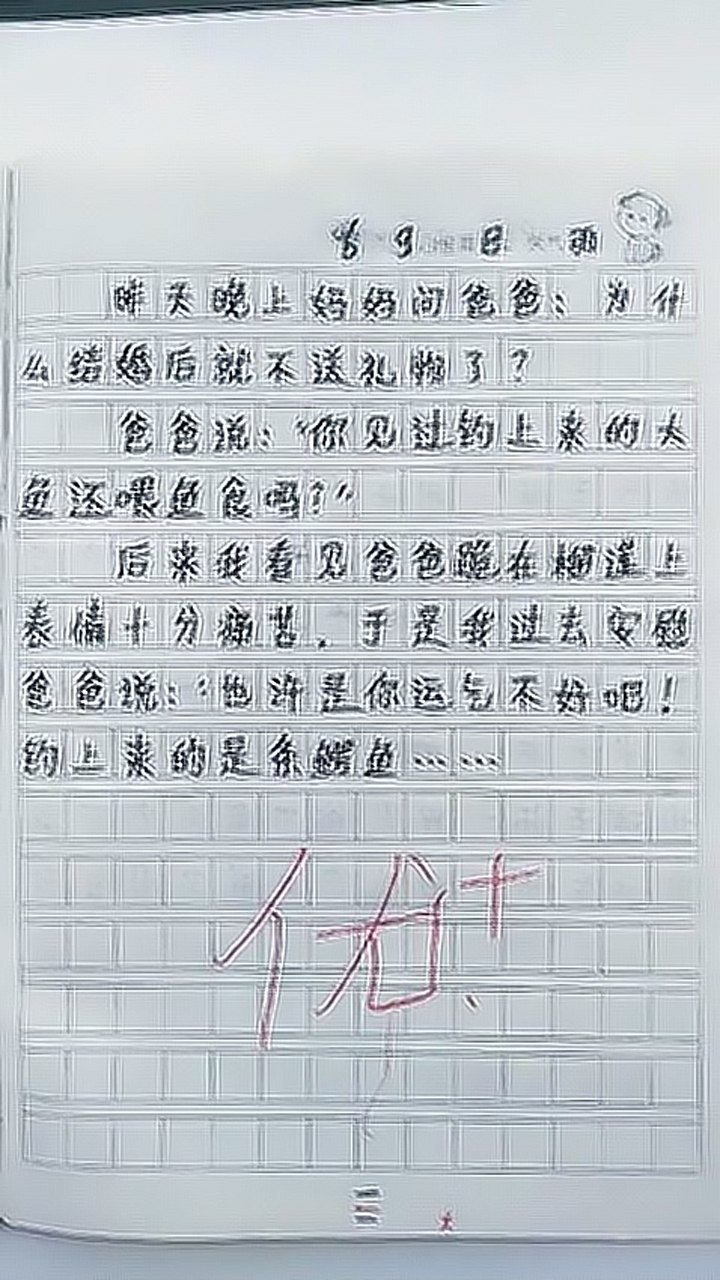 6 9 日 雨
昨天晚上妈妈问爸爸：为什
么结婚后就不送礼物了？
爸爸说：“你见过钓上来的大
鱼还喂鱼食吗？”
后来我看见爸爸跪在榴莲上
表情十分痛苦．于是我过去安慰
爸爸说：“也许是你运气不好吧！
钓上来的是条鳄鱼……
优+